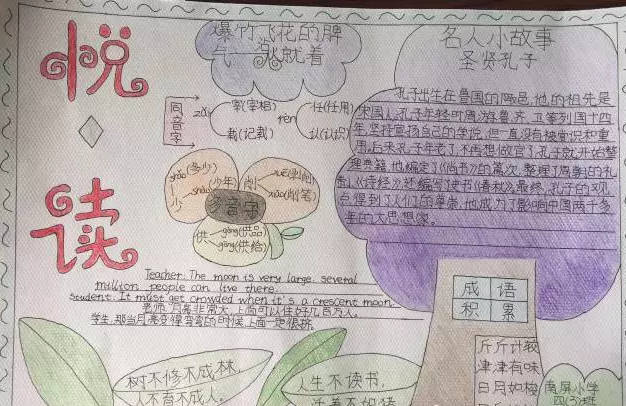 悦
读
爆竹飞花的脾
气一点就着
同音字
zǎi
宰(宰相)
载(记载)
rèn
任(任用)
认(认识)
多音字
少
shǎo(多少)
shào(少年)
削
xuē(剥削)
xiāo(削笔)
供
gòng(供品)
gōng(供给)
名人小故事
圣贤孔子
孔子出生在鲁国的陬邑,他的祖先是
宋国人,孔子年轻时周游鲁、齐、卫等列国十四
年,坚持宣扬自己的学说,但一直没有被赏识和重
用,后来,孔子年老了,不再想做官了,孔子就开始整
理典籍,他编定了《尚书》的篇次,整理了周朝的礼
制,《诗经》,还编写读书《春秋》,最终,孔子的观
点得到了人们的尊崇,他成为了影响中国两千多
年的大思想家。
Teacher: The moon is very large. several
million people can live there.
Student: It must get crowded when it's a crescent moon.
老师:月亮非常大,上面可以住好几百万人。
学生:那当月亮变得弯弯的时候,上面一定很挤。
成语
积累
斤斤计较
津津有味
日月如梭
南屏小学
四(3)班
树不修不成林,
人不育不成人。
人生不读书,
活着不如猪